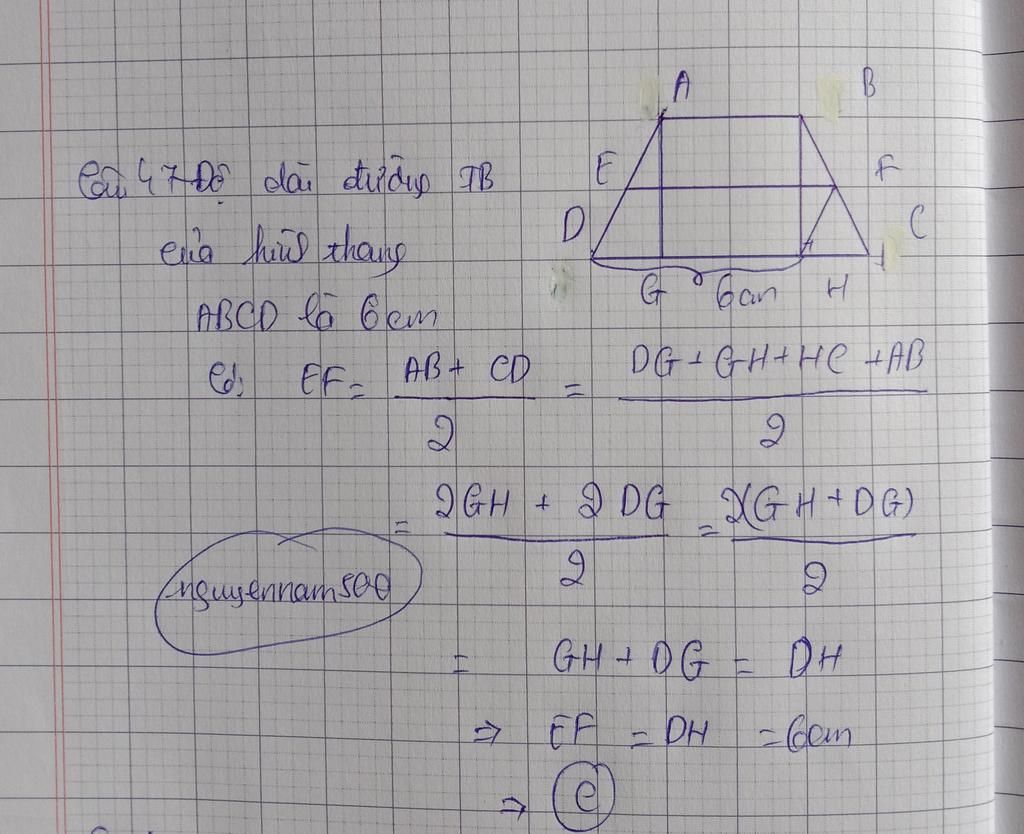 A B
Câu 47 Độ dài đường TB
E F
của hình thang
D C
G 6cm H
ABCD là 6cm
Có: EF = AB + CD / 2 = DG + GH + HC + AB / 2
= 2GH + 2DG / 2 = 2(GH + DG) / 2
nguyennam500
= GH + DG = DH
⇒ EF = DH = 6cm
⇒ C